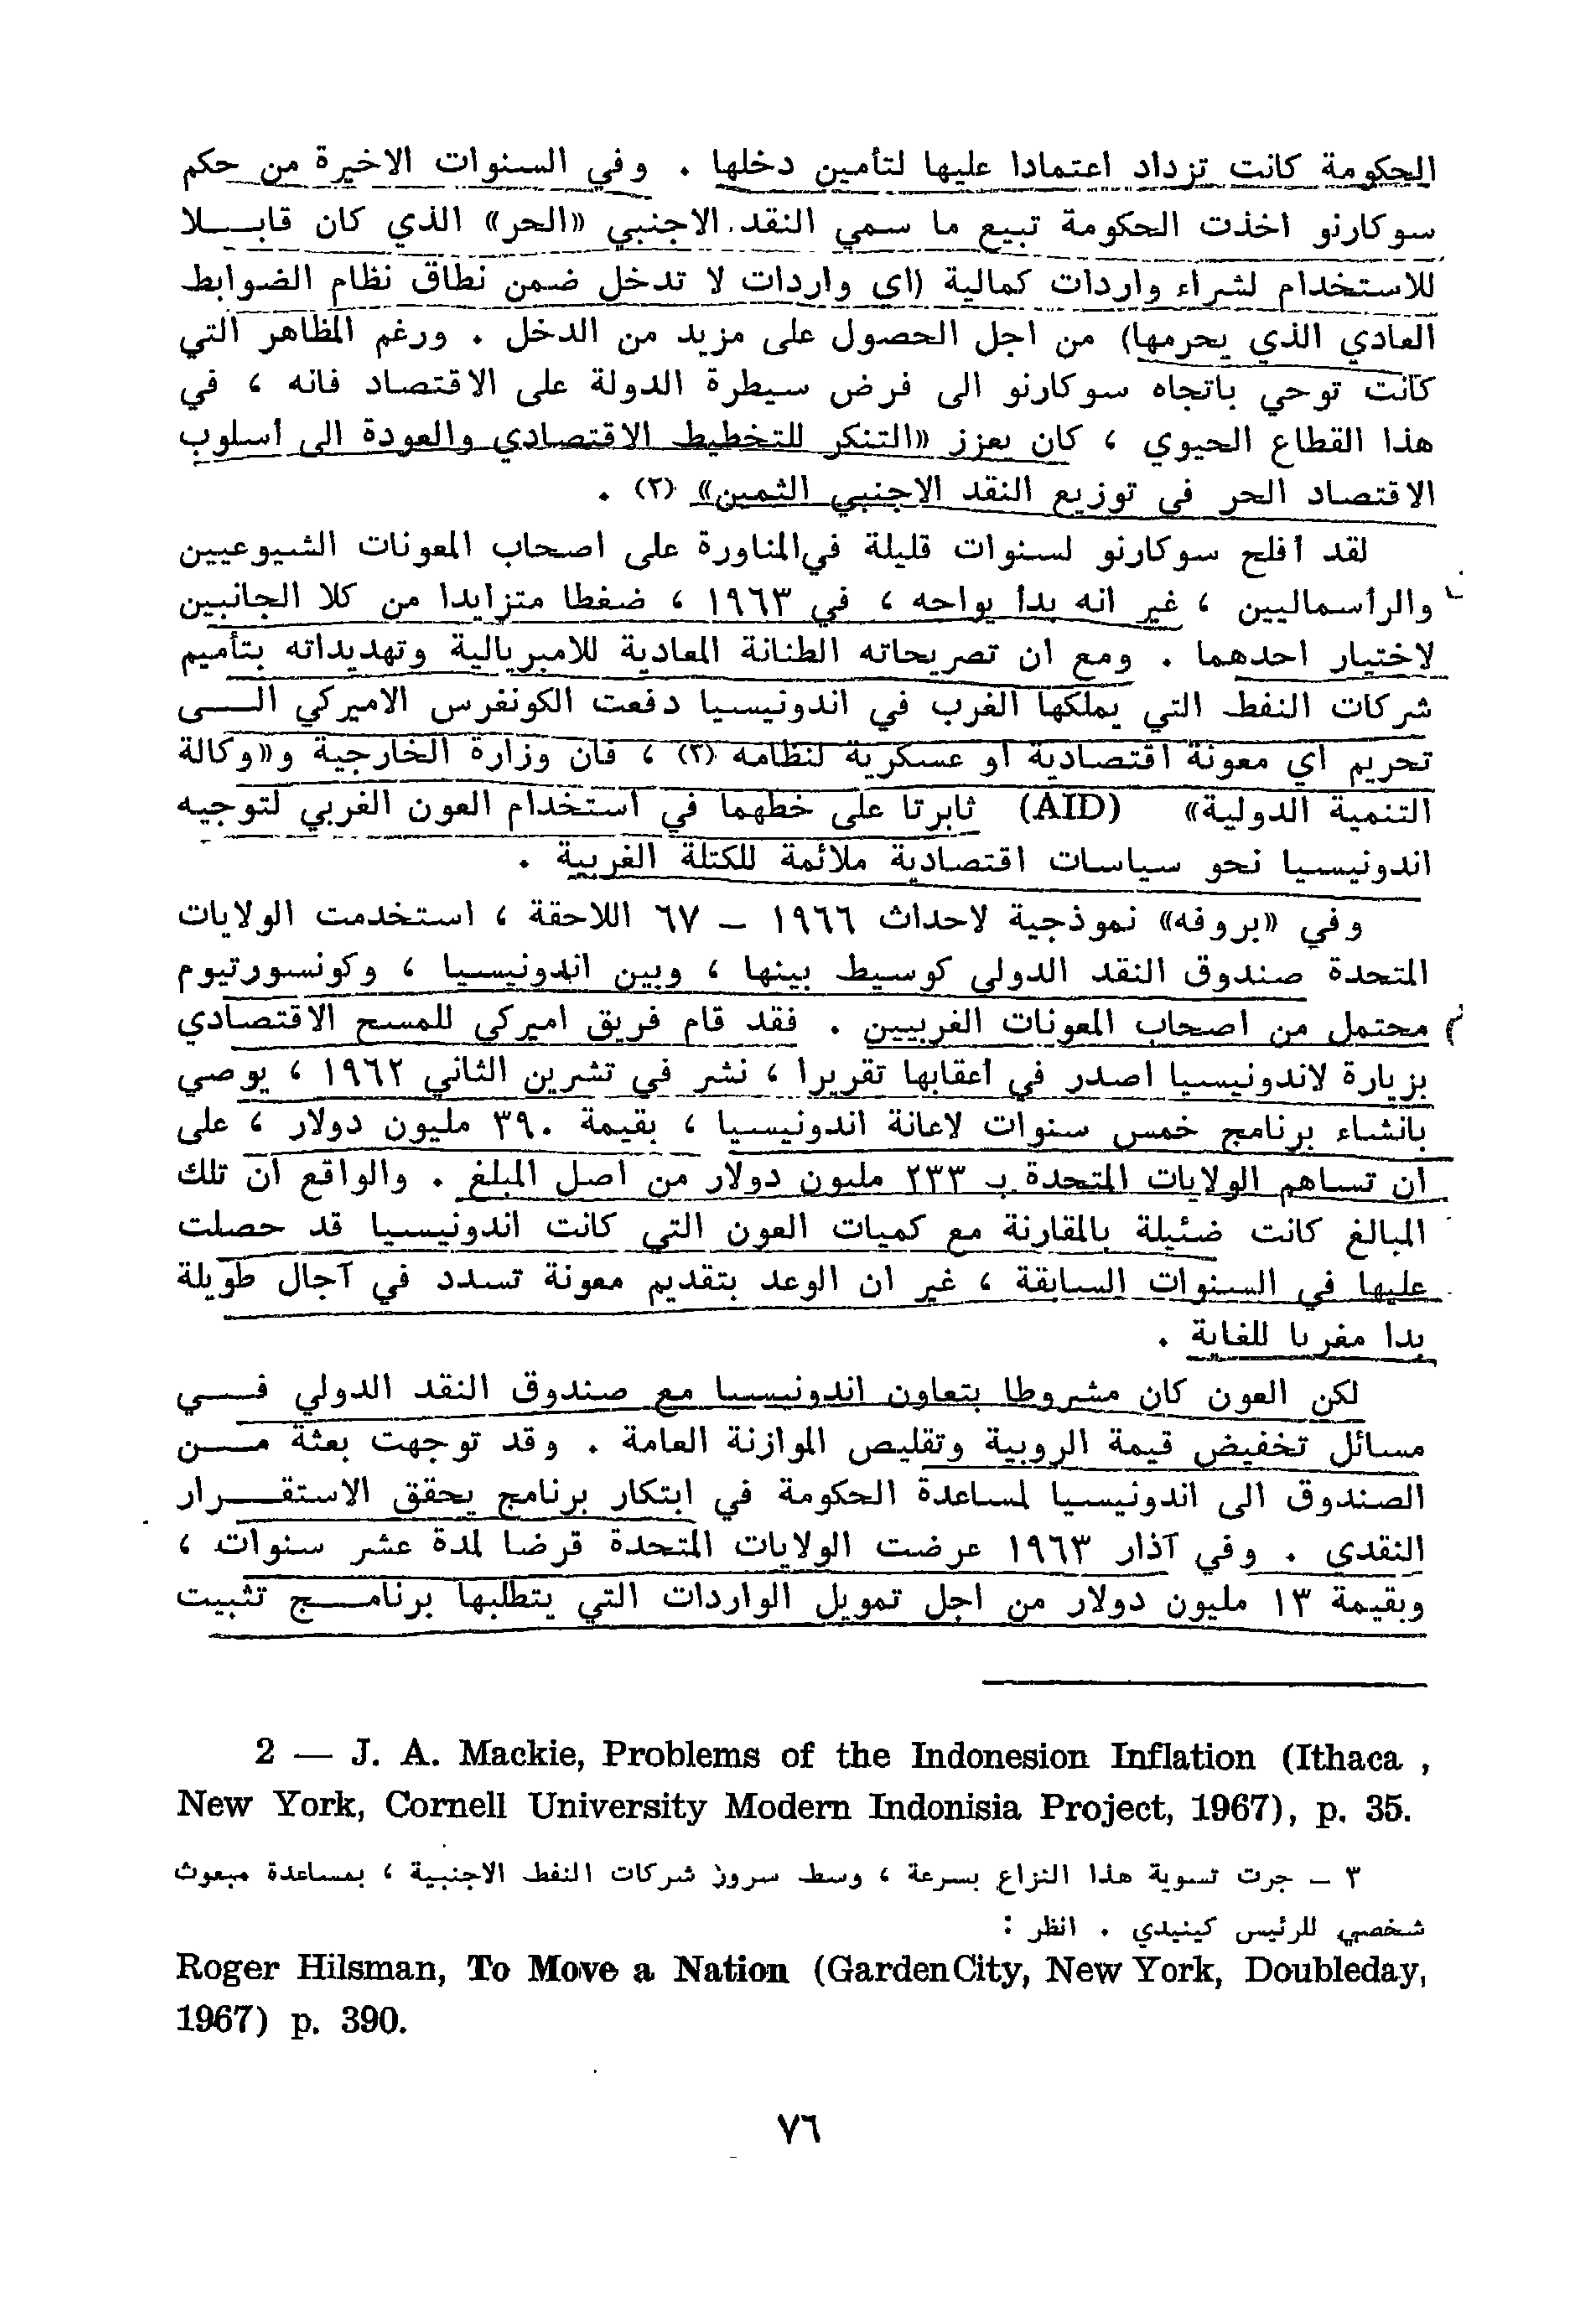 الحكومة كانت تزداد اعتمادا عليها لتأمين دخلها . وفي السنوات الاخيرة من حكم
سوكارنو اخذت الحكومة تبيع ما سمي النقد الاجنبي «الحر» الذي كان قابـــلا
للاستخدام لشراء واردات كمالية (اي واردات لا تدخل ضمن نطاق نظام الضوابط
العادي الذي يحرمها) من اجل الحصول على مزيد من الدخل . ورغم المظاهر التي
كانت توحي باتجاه سوكارنو الى فرض سيطرة الدولة على الاقتصاد فانه ، في
هذا القطاع الحيوي ، كان يعزز «التنكر للتخطيط الاقتصادي والعودة الى أسلوب
الاقتصاد الحر في توزيع النقد الاجنبي الثمين» (٢) .
لقد أفلح سوكارنو لسنوات قليلة في المناورة على اصحاب المعونات الشيوعيين
والرأسماليين ، غير انه بدأ يواجه ، في ١٩٦٣ ، ضغطا متزايدا من كلا الجانبين
لاختيار احدهما . ومع ان تصريحاته الطنانة المعادية للامبريالية وتهديداته بتأميم
شركات النفط التي يملكها الغرب في اندونيسيا دفعت الكونغرس الاميركي الـــى
تحريم أي معونة اقتصادية أو عسكرية لنظامه (٣) ، فان وزارة الخارجية و«وكالة
التنمية الدولية» (AID) ثابرتا على خطهما في استخدام العون الغربي لتوجيه
اندونيسيا نحو سياسات اقتصادية ملائمة للكتلة الغربية .
وفي «بروفه» نموذجية لاحداث ١٩٦٦ – ٦٧ اللاحقة ، استخدمت الولايات
المتحدة صندوق النقد الدولي كوسيط بينها ، وبين اندونيسيا ، وكونسورتيوم
محتمل من اصحاب المعونات الغربيين . فقد قام فريق اميركي للمسح الاقتصادي
بزيارة لاندونيسيا اصدر في أعقابها تقريرا ، نشر في تشرين الثاني ١٩٦٢ ، يوصي
بانشاء برنامج خمس سنوات لاعانة اندونيسيا ، بقيمة ٣٩٠ مليون دولار ، على
أن تساهم الولايات المتحدة بـ ٢٣٣ مليون دولار من أصل المبلغ . والواقع أن تلك
المبالغ كانت ضئيلة بالمقارنة مع كميات العون التي كانت اندونيسيا قد حصلت
عليها في السنوات السابقة ، غير ان الوعد بتقديم معونة تسدد في آجال طويلة
بدا مغريا للغاية .
لكن العون كان مشروطا بتعاون اندونيسيا مع صندوق النقد الدولي فـــي
مسائل تخفيض قيمة الروبية وتقليص الموازنة العامة . وقد توجهت بعثة مـــن
الصندوق الى اندونيسيا لمساعدة الحكومة في ابتكار برنامج يحقق الاستقـــرار
النقدي . وفي آذار ١٩٦٣ عرضت الولايات المتحدة قرضا لمدة عشر سنوات ،
وبقيمة ١٣ مليون دولار من اجل تمويل الواردات التي يتطلبها برنامـــج تثبيت
2 — J. A. Mackie, Problems of the Indonesion Inflation (Ithaca ,
New York, Cornell University Modern Indonisia Project, 1967), p. 35.
٣ – جرت تسوية هذا النزاع بسرعة ، وسط سرور شركات النفط الاجنبية ، بمساعدة مبعوث
شخصي للرئيس كينيدي . انظر :
Roger Hilsman, To Move a Nation (Garden City, New York, Doubleday,
1967) p. 390.
٧٦